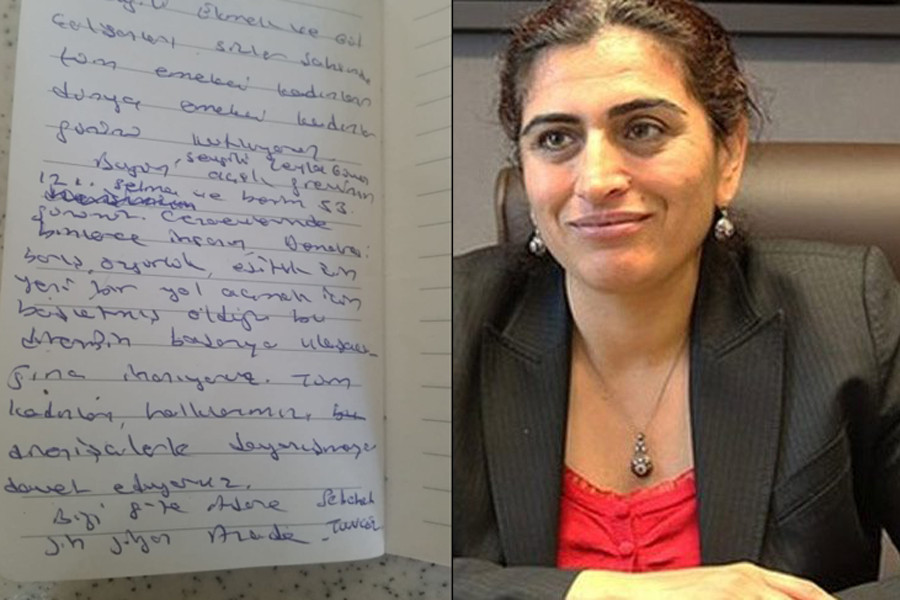 Ekmek ve Gül
çalışanları sizler şahsında
tüm emekçi kadınların
dünya emekçi kadınlar
gününü kutluyorum.
Bugün, sevgili Leyla Güven
açlık grevinin
121. Selma ve benim 53.
günümüz. Cezaevlerinde
binlerce insanın
barış, özgürlük, eşitlik için
yeni bir yol açmak için
başlatmış olduğu bu
direnişin başarıya ulaşaca-
ğına inanıyoruz. Tüm
kadınları, halklarımızı, bu
direnişçilerle dayanışmaya
davet ediyoruz.
Bıji 8-ye Adarê Sebahat
jin jiyan Azadî Tuncel